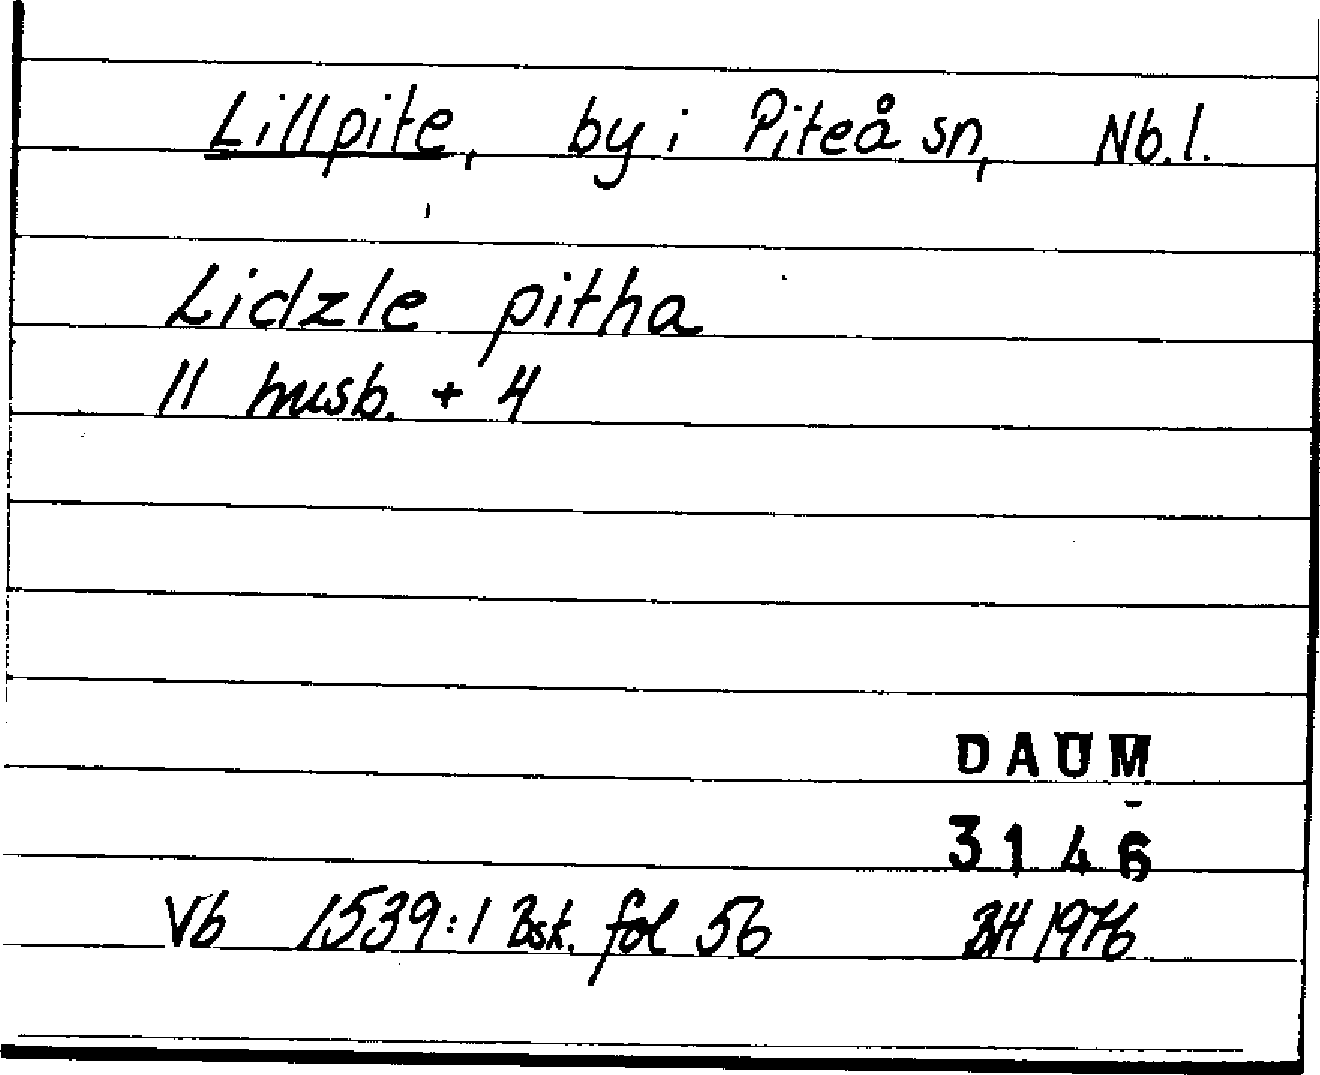 Lillpite, by i Piteå sn, Nb.l.
Lidzle pitha
11 husb. + 4
DAUM
3146
Vb 1539:1 Bsk. fol 56 BH 1976